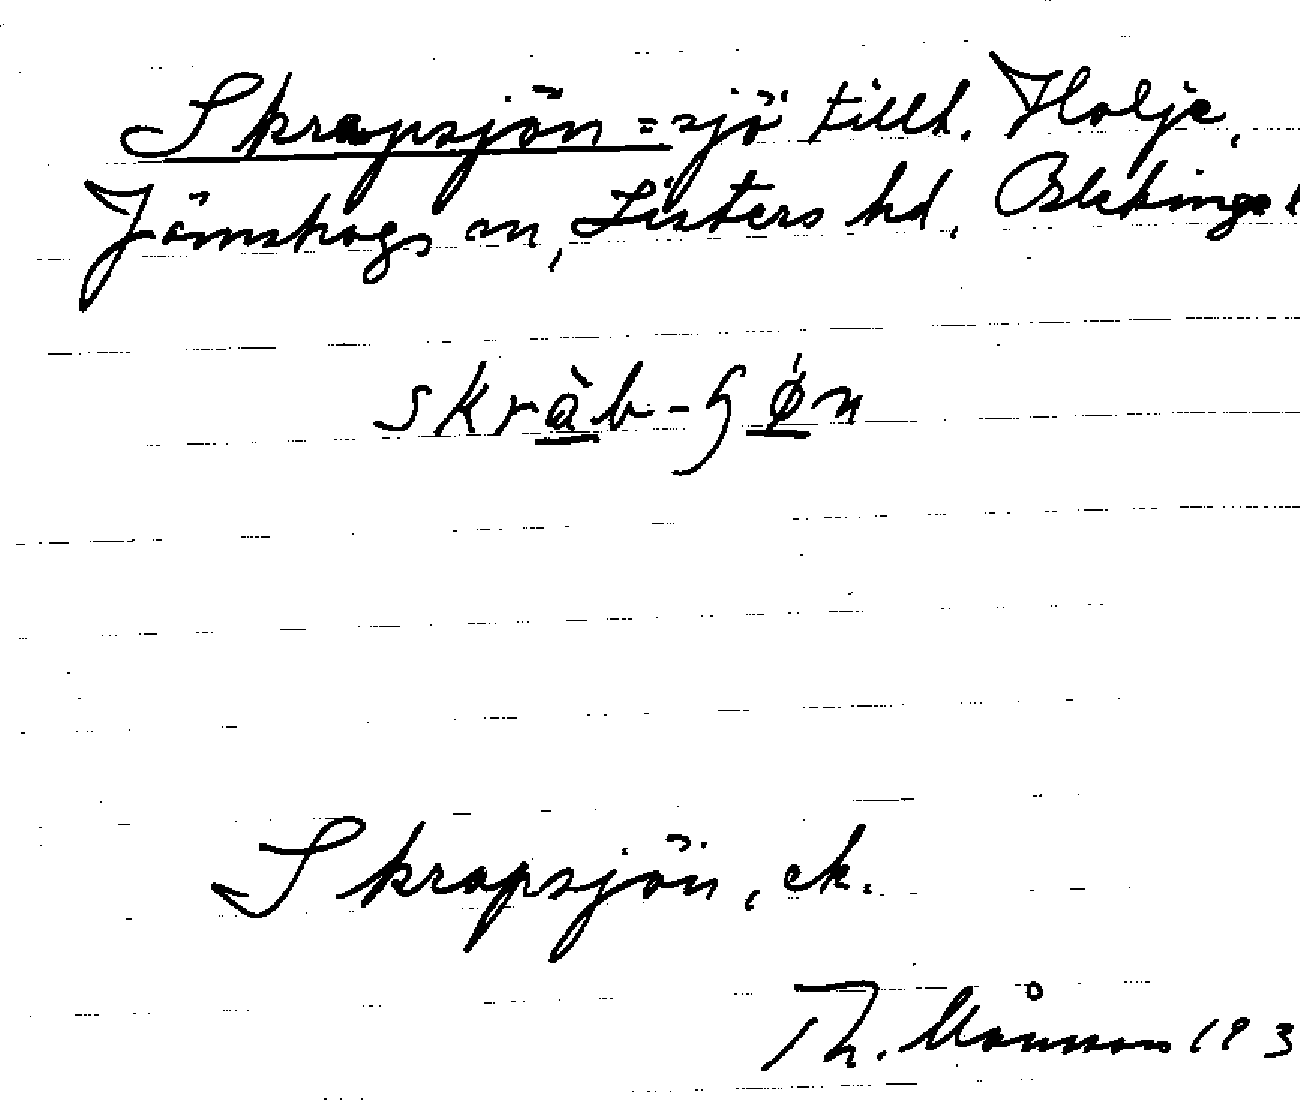 Skrapsjön = sjö tillh. Holje,
Jämshogs sn, Listers hd, Blekinge l
skràb-ʃø̀n
Skrapsjön, ek.
Th. Månsson 193